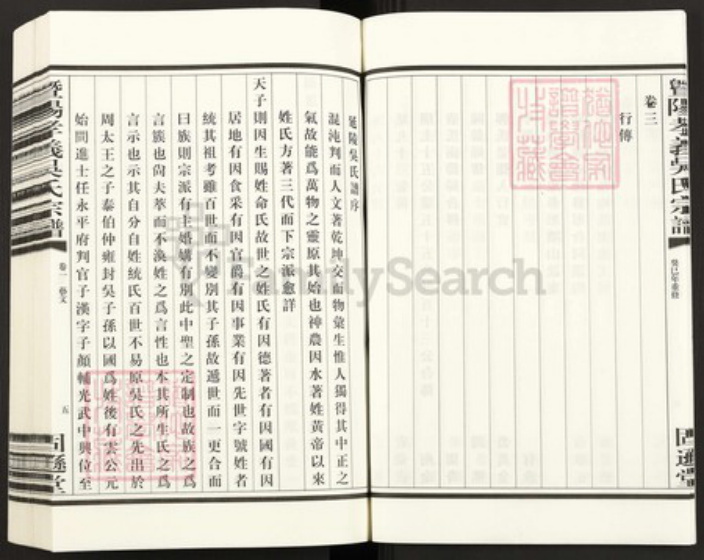 暨陽孝義吳氏宗譜
癸巳年重修
卷三
行傳
延陵吳氏譜序
混沌判而人文著乾坤交而物彙生惟人獨得其中正之
氣故能爲萬物之靈原其始也神農因水著姓黃帝以來
姓氏方著三代而下宗派愈詳
天子則因生賜姓命氏故世之姓氏有因德著者有因國有因
居地有因食采有因官爵有因事業有因先世字號姓者
統其祖考雖百世而不變別其子孫故遞世而一更合而
曰族則宗派有主婚媾有別此中聖之定制也故族之爲
言簇也尙夫萃而不渙姓之爲言性也本其所生氏之爲
言示也示其自分自姓統氏百世不易原吳氏之先出於
周太王之子泰伯仲雍封吳子孫以國爲姓後有雲公元
始間進士任永平府判官子漢字子顏輔光武中興位至
暨陽孝義吳氏宗譜
卷一 藝文
五
FamilySearch